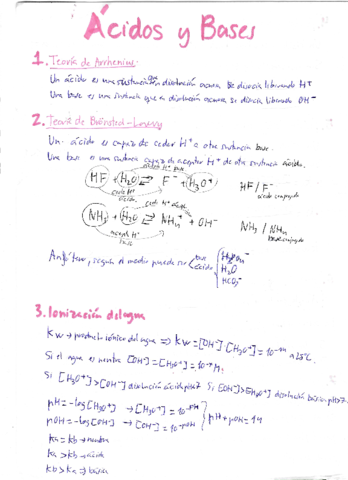 Ácidos y Bases
1. Teoría de Arrhenius
Un ácido es una sustancia que en disolución acuosa se disocia liberando H⁺
Una base es una sustancia que en disolución acuosa se disocia liberando OH⁻
2. Teoría de Brönsted-Lowry
Un ácido es capaz de ceder H⁺ a otra sustancia base.
Una base es una sustancia capaz de aceptar H⁺ de otra sustancia ácida.
HF + H₂O ⇄ F⁻ + H₃O⁺
HF / F⁻
cede H⁺
ácido
cede H⁺
NH₃ + H₂O ⇄ NH₄⁺ + OH⁻
NH₃ / NH₄
acepta H⁺
base
Anfótero, según el medio puede ser base ácido
H₂O
HCO₃⁻
3. Ionización del agua
Kw → producto iónico del agua ⇒ Kw = [OH⁻]·[H₃O⁺] = 10⁻¹⁴ a 25°C
Si el agua es neutra [OH⁻] = [H₃O⁺] = 10⁻⁷ M
Si [H₃O⁺] > [OH⁻] disolución ácida pH<7 Si [OH⁻] > [H₃O⁺] disolución básica pH>7
pH = -log[H₃O⁺] → [H₃O⁺] = 10⁻ᵖᴴ
pOH = -log[OH⁻] → [OH⁻] = 10⁻ᵖᴼᴴ
pH + pOH = 14
Ka = Kb → neutra
Ka > Kb → ácida
Kb > Ka ⇒ básica